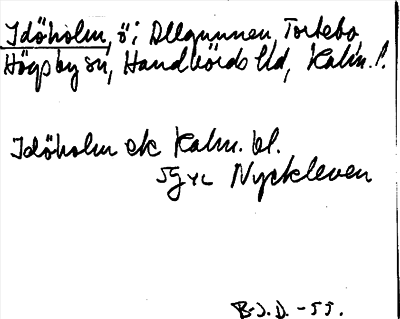 Idöholm, ö i Allgunnen, Torsebo
Högsby sn, Handbörds hd, Kalm. l.
Idöholm ek Kalm. bl.
Nyckleven
B.J.D. -55.